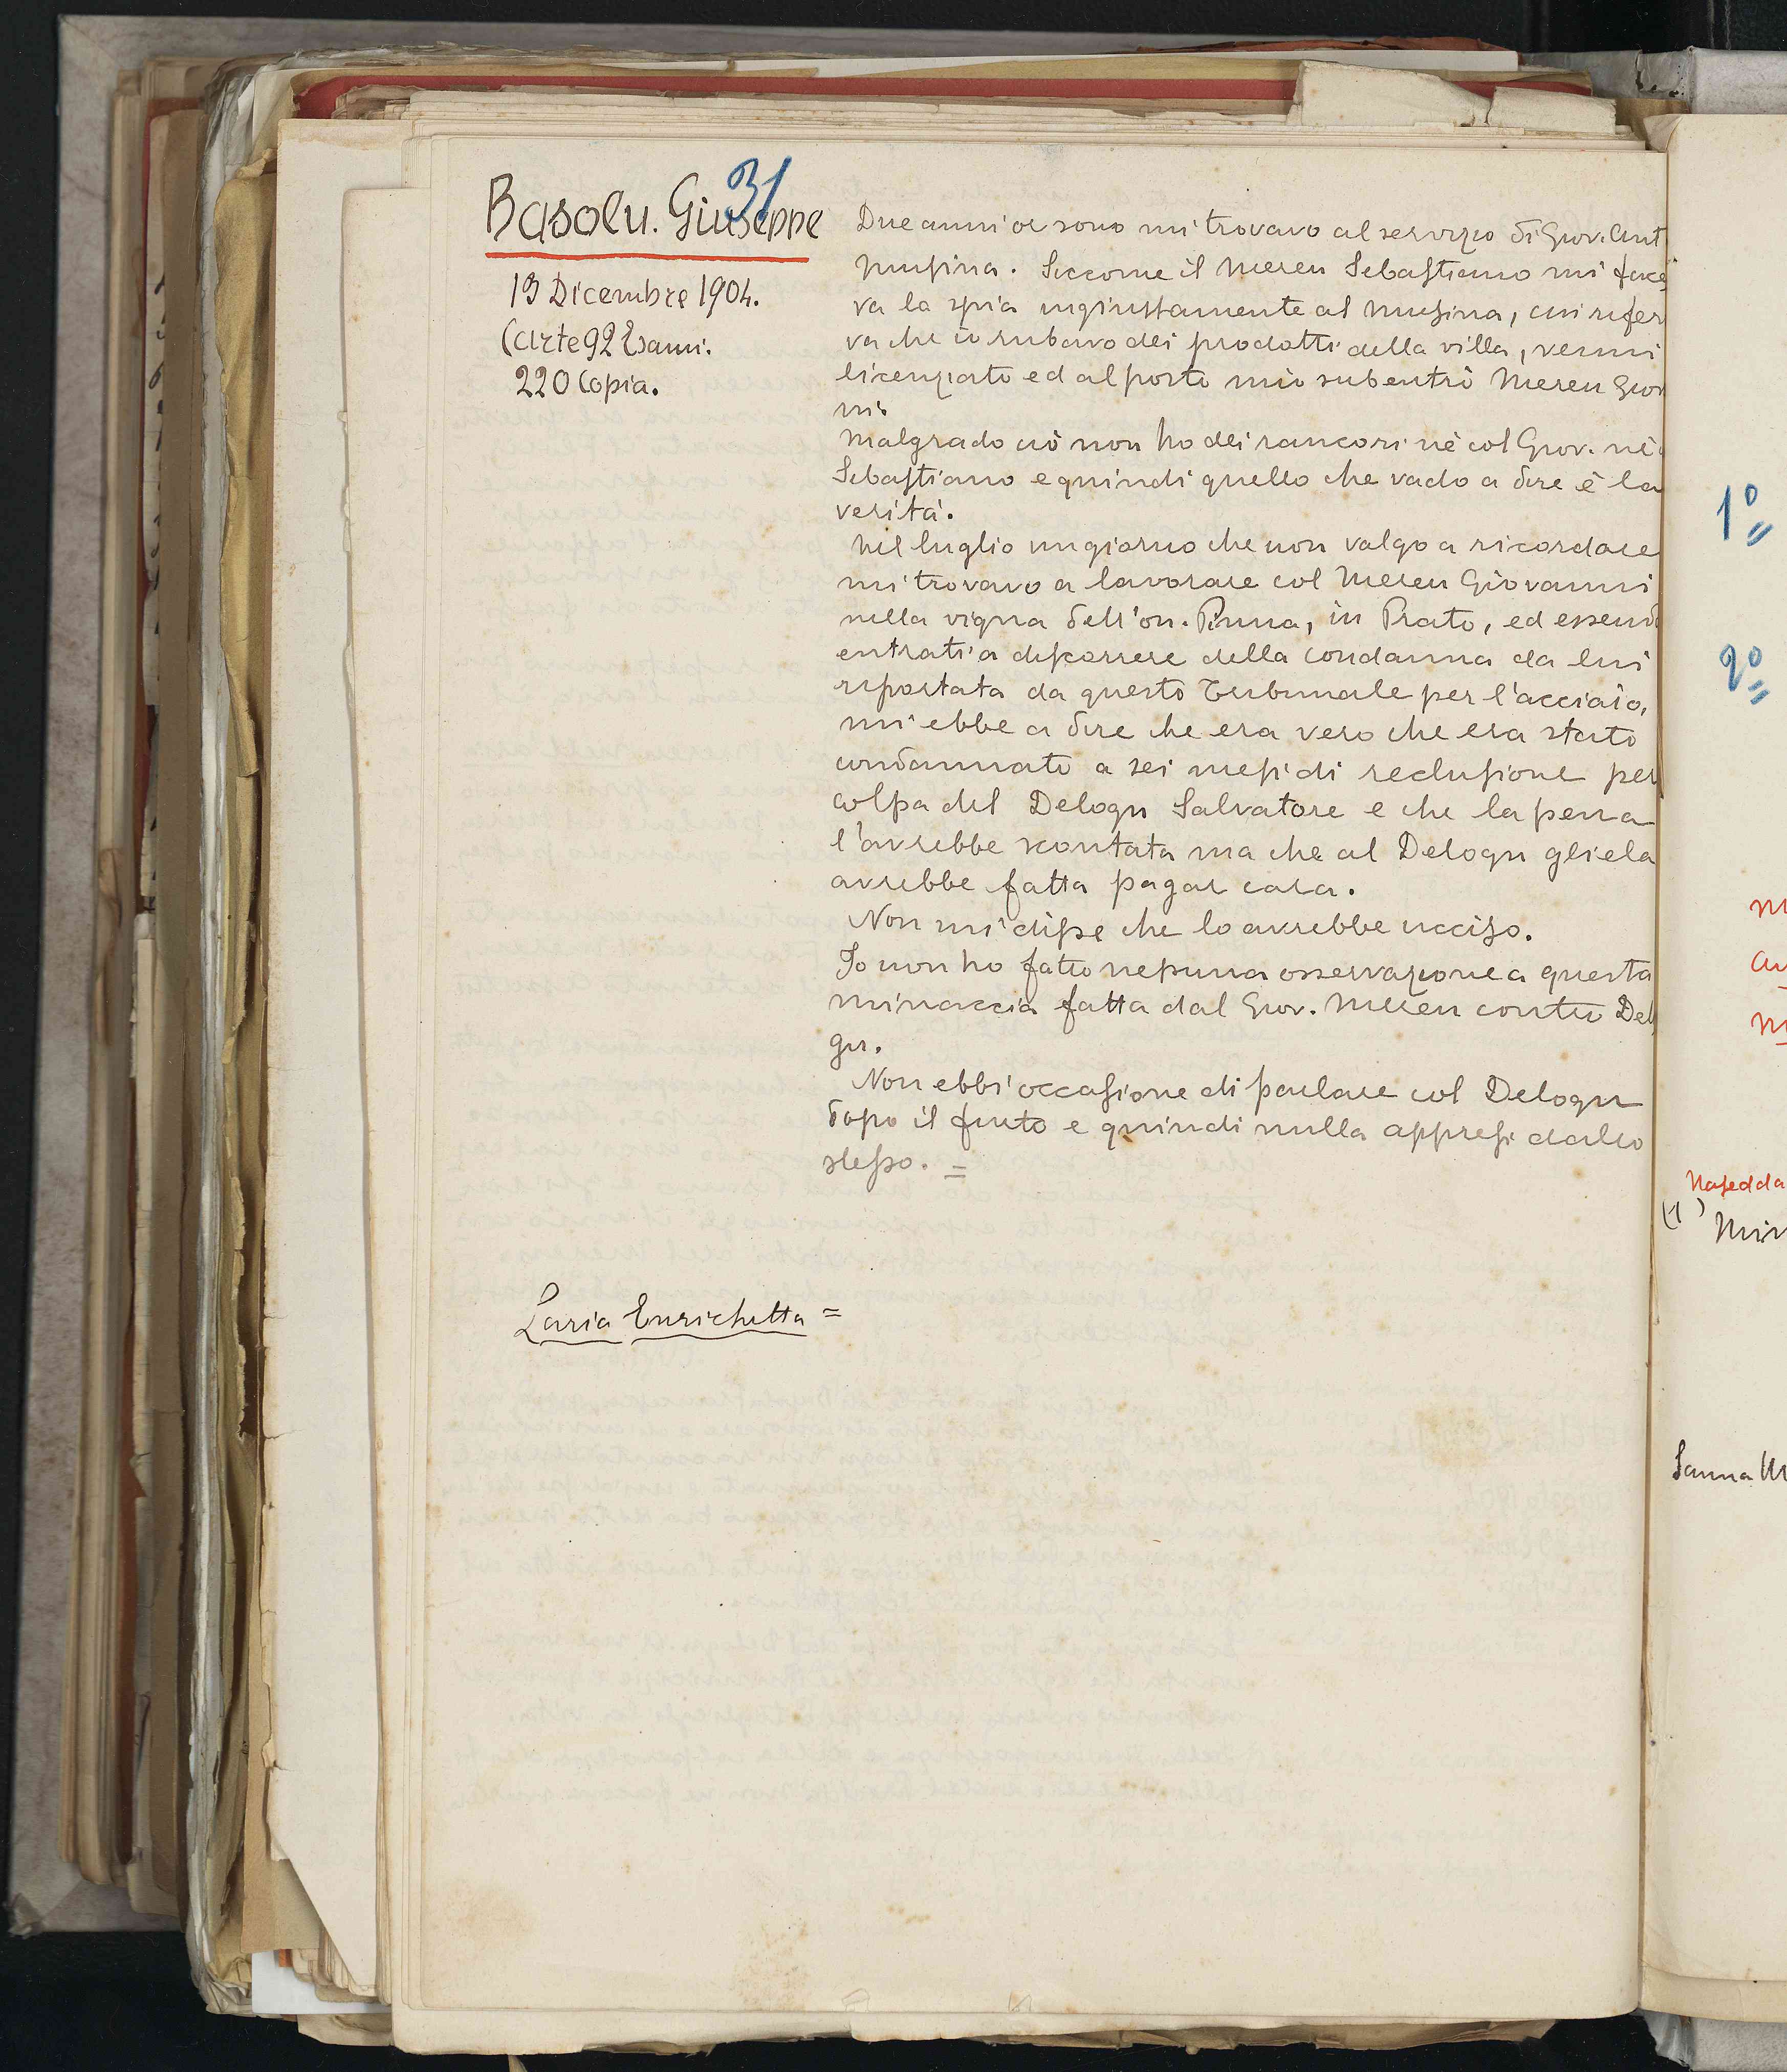 31
Basolu. Giuseppe
13 Dicembre 1904.
Carte 92 Esami.
220 Copia.
Due anni or sono mi trovavo al servizio di Giov. Ant
Musina. Siccome il Mereu Sebastiano mi face
va la spia ingiustamente al Musina, cui riferi
va che io rubavo dei prodotti della villa, venni
licenziato ed al posto mio subentrò Mereu Giov
ni.
Malgrado ciò non ho dei rancori nè col Giov. nè
Sebastiano e quindi quello che vado a dire è la
verità.
Nel luglio un giorno che non valgo a ricordare
mi trovavo a lavorare col Mereu Giovanni
nella vigna dell'on. Pinna, in Prato, ed essend
entrati a discorrere della condanna da lui
riportata da questo Tribunale per l'acciaio,
mi ebbe a dire che era vero che era stato
condannato a sei mesi di reclusione per
colpa del Delogu Salvatore e che la pena
l'avrebbe scontata ma che al Delogu gliela
avrebbe fatta pagar cara.
Non mi disse che lo avrebbe ucciso.
Io non ho fatto nessuna osservazione a questa
minaccia fatta dal Giov. Mereu contro Del
gu.
Non ebbi occasione di parlare col Delogu
dopo il furto e quindi nulla appresi dallo
stesso. =
Laria Enrichetta =
1º
2º
Nasedda
(1)
Sanna M